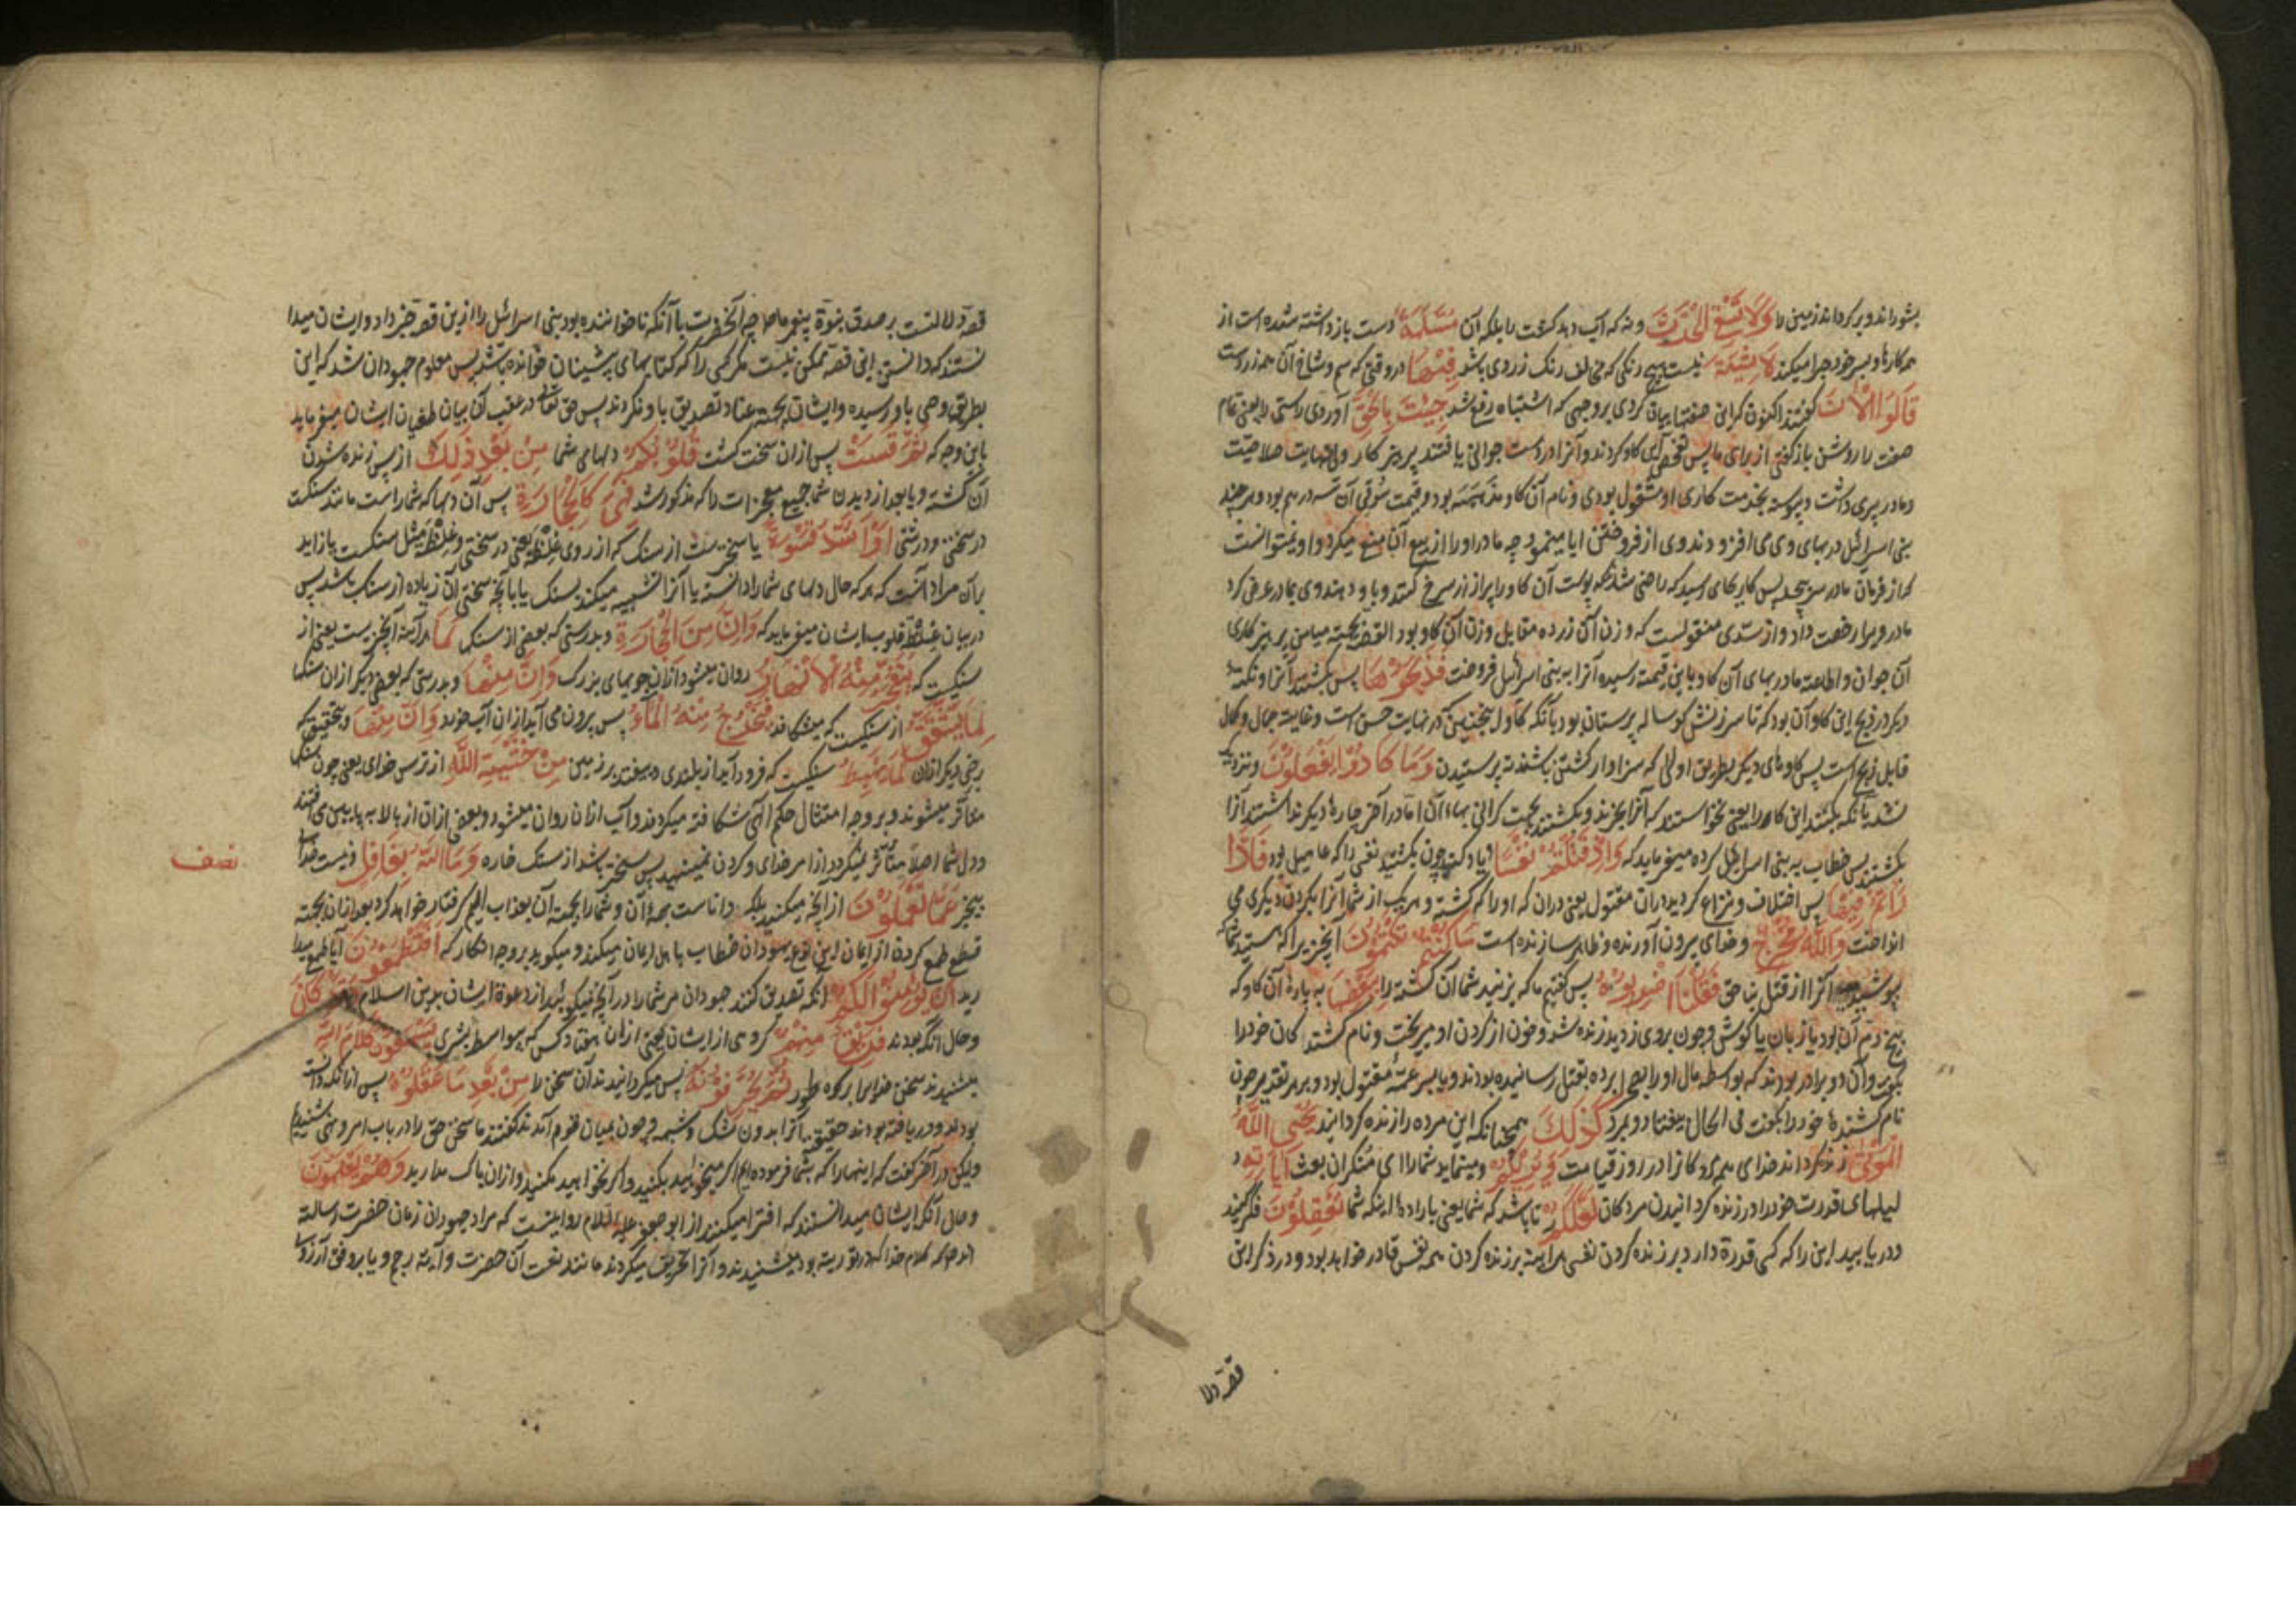 بشوراند و برگرداند زمین را وَلَا تَسْقِی الْحَرْثَ و نه که آب دهد کشت را بلکه آن مُسَلَّمَةٌ دست بازداشته شده است از
همه کارها و بسر خود چرا میکند لَا شِیَةَ نیست هیچ رنگی که مخالف رنگ زردی باشد فِیْهَا دروقتی که سم و شاخ آن همه زردست
قَالُوا الْاٰنَ گفتند اکنون که این صفتها بیان کردی بروجهی که اشتباه رفع شد جِئْتَ بِالْحَقِّ آوردی راستی را یعنی تمام
صفت را روشن بازگفتی از برای ما پس تفحص این گاو کردند و آنرا در دست جوانی یافتند پرهیزکار ولی بنهایت صلاحیت
و مادر پیری داشت و پیوسته بخدمت گاری او مشغول بودی و نام آن گاو مذهبه بود و قیمت سوقی آن سه درهم بود و هرچند
بنی اسرائیل در بهای وی می افزودند وی از فروختن ابا مینمود چه مادر او را از بیع آن منع میکرد و او نمیتوانست
که از فرمان مادر سر پیچد پس کار بجای رسید که راضی شدند که پوست آن گاو را پر از زر سرخ کنند و باو دهند وی بمادر عرض کرد
مادر ویرا رخصت داد و از سدی منقولست که وزن آن زر ده مقابل وزن آن گاو بود القصه بجهت میامن پرهیزکاری
آن جوان و اطاعت مادر بهای آن گاو باین قیمت رسیده آنرا به بنی اسرائیل فروخت فَذَبَحُوْهَا پس بکشتند آنرا و نکته
دیگر در ذبح این گاو آن بود که تا سرزنش گوساله پرستان بود بآنکه گاو اینچنین که در نهایت حسن است و غایت جمال و کمال
قابل ذبح است پس گاوهای دیگر بطریق اولی که سزاوار کشتن باشند نه پرستیدن وَمَا كَادُوْا یَفْعَلُوْنَ و نزدیک
نشد بآنکه بکشند این گاو را یعنی نخواستند که آنرا بخرند و بکشند بجهت گرانی بهاء آن اما در آخر چاره دیگر نداشتند آنرا
بکشتند پس خطاب به بنی اسرائیل کرده میفرماید که وَاِذْ قَتَلْتُمْ نَفْسًا و یاد کنید چون بکشتید نفسی را که عامیل بود فَادّٰا
رَأْتُمْ فِیْهَا پس اختلاف و نزاع کردید در آن مقتول یعنی در آن که او را که کشته و هریک از شما آنرا بگردن دیگری می
انداخت وَاللّٰهُ مُخْرِجٌ و خدای بیرون آورنده و ظاهر سازنده است مَا كُنْتُمْ تَكْتُمُوْنَ آنچیز را که هستید شما که
پوشیدید آنرا از قتل بناحق فَقُلْنَا اضْرِبُوْهُ پس گفتیم ما که بزنید شما آن کشته را بِبَعْضِهَا به پاره آن گاو که
بیخ دم آن بود یا زبان یا گوش و چون بروی زدید زنده شد و خون از گردن او میریخت و نام کشندگان خود را
بگوید و آن دو برادر بودند که بواسطه مال او را بصحرا برده بقتل رسانیده بودند و یا پسر عمه مقتول بود و بهر تقدیر چون
نام کشنده خود را بگفت فی الحال بیفتاد و بمرد كَذٰلِكَ همچنانکه این مرده را زنده گردانید یُحْیِی اللّٰهُ
الْمَوْتٰی زنده گرداند خدای همه مردگانرا در روز قیامت وَیُرِیْكُمْ و مینماید شما را ای منکران بعث اٰیَاتِهٖ د
لیلهای قدرت خود را در زنده گردانیدن مردگان لَعَلَّكُمْ تا باشد که شما یعنی باراده اینکه شما تَعْقِلُوْنَ فکر کنید
و دریابید این را که کسی قدرة دارد بر زنده کردن نفسی هرآینه بر زنده کردن همه نفس قادر خواهد بود و در ذکر این
قصه دلا
قصه دلالتست بر صدق نبوة پیغمبر ما صلعم چه آنحضرت با آنکه ناخوانده بود بنی اسرائیل را ازین قصه خبر داد و ایشان میدا
نستند که دانستن این قصه ممکن نیست مگر کسی را که کتابهای پیشینان خوانده باشد پس معلوم جهودان شد که این
بطریق وحی باو رسیده و ایشان بجهت عناد تصدیق باو نکردند پس حق تعالی در عقب آن بیان طغیان ایشان میفرماید
باین وجه که ثُمَّ قَسَتْ پس ازان سخت گشت قُلُوْبُكُمْ دلهای شما مِنْ بَعْدِ ذٰلِكَ از پس زنده شدن
آن کشته و یا بعد از دیدن شما جمیع معجزات را که مذکور شد فَهِیَ كَالْحِجَارَةِ پس آن دلها که شماراست مانند سنگست
در سختی و درشتی اَوْ اَشَدُّ قَسْوَةً یا سخترست از سنگ که از روی غلظ یعنی در سختی و غلظ مثل سنگست یا زاید
برآن مراد آنست که هرکه حال دلهای شما را دانسته یا آنرا تشبیه میکند بسنگ یا بآنچه سختی آن زیاده از سنگ باشد پس
در بیان غلظ قلوب ایشان میفرماید که وَاِنَّ مِنَ الْحِجَارَةِ و بدرستی که بعضی از سنگ لَمَا هرآینه آنچیزست یعنی از
سنگیست که یَتَفَجَّرُ مِنْهُ الْاَنْهَارُ روان میشود ازان جویهای بزرگ وَاِنَّ مِنْهَا و بدرستی که بعضی دیگر ازان سنگها
لَمَا یَشَّقَّقُ از سنگیست که میشکافد فَیَخْرُجُ مِنْهُ الْمَاءُ پس بیرون می آید ازان آب خورد وَاِنَّ مِنْهَا و بتحقیق که
برخی دیگر ازان لَمَا یَهْبِطُ سنگیست که فرود آید از بلندی و بیفتد بر زمین مِنْ خَشْیَةِ اللّٰهِ از ترس خدای یعنی چون سنگها
متأثر میشوند و بروجه امتثال حکم الهی شکافته میگردند و آب ازان روان میشود و بعضی ازان از بالا به پایین می افتند
و دل شما اصلا متأثر نمیگردد از امر خدای و گردن نمینهید پس سختتر باشد از سنگ خاره وَمَا اللّٰهُ بِغَافِلٍ و نیست خدا
نصف
بیخبر عَمَّا تَعْمَلُوْنَ از آنچه میکنید بلکه داناست بهمه آن و شما را بجهت آن بعذاب الیم گرفتار خواهد کرد بعد ازان بجهته
قطع طمع کردن از ایمان این نوع جهودان خطاب باهل ایمان میکند و میگوید بروجه انکار که اَفَتَطْمَعُوْنَ آیا طمع میدا
رید اَنْ یُؤْمِنُوْا لَكُمْ آنکه تصدیق کنند جهودان مر شما را در آنچه میگویید از دعوة ایشان بدین اسلام وَقَدْ كَانَ
و حال آنکه بودند فَرِیْقٌ مِنْهُمْ گروهی از ایشان یعنی ازان هفتاد کس که بیواسطه بشری یَسْمَعُوْنَ كَلَامَ اللّٰهِ
میشنیدند سخن خدایرا بر کوه طور ثُمَّ یُحَرِّفُوْنَهٗ پس میگردانیدند آن سخن را مِنْ بَعْدِ مَا عَقَلُوْهُ پس ازانکه دانست
بودند و دریافته بودند حقیقت آنرا بدون شک و شبهه و چون بمیان قوم آمدند گفتند ما سخن حق را در باب امر و نهی شنیدیم
ولیکن در آخر گفت که اینها را که بشما فرموده ام اگر میخواهید بکنید و اگر نخواهید مکنید و ازان باک مدارید وَهُمْ یَعْلَمُوْنَ
و حال آنکه ایشان میدانستند که افترا میکنند از ابو جعفر علیه السلام روایتست که مراد جهودان زمان حضرت رسالة
اند صلعم که کلام خدا که در توریته بود میشنیدند و آنرا تحریف میکردند مانند نعت آن حضرت و آیة رجم و یا بروفق آرزو